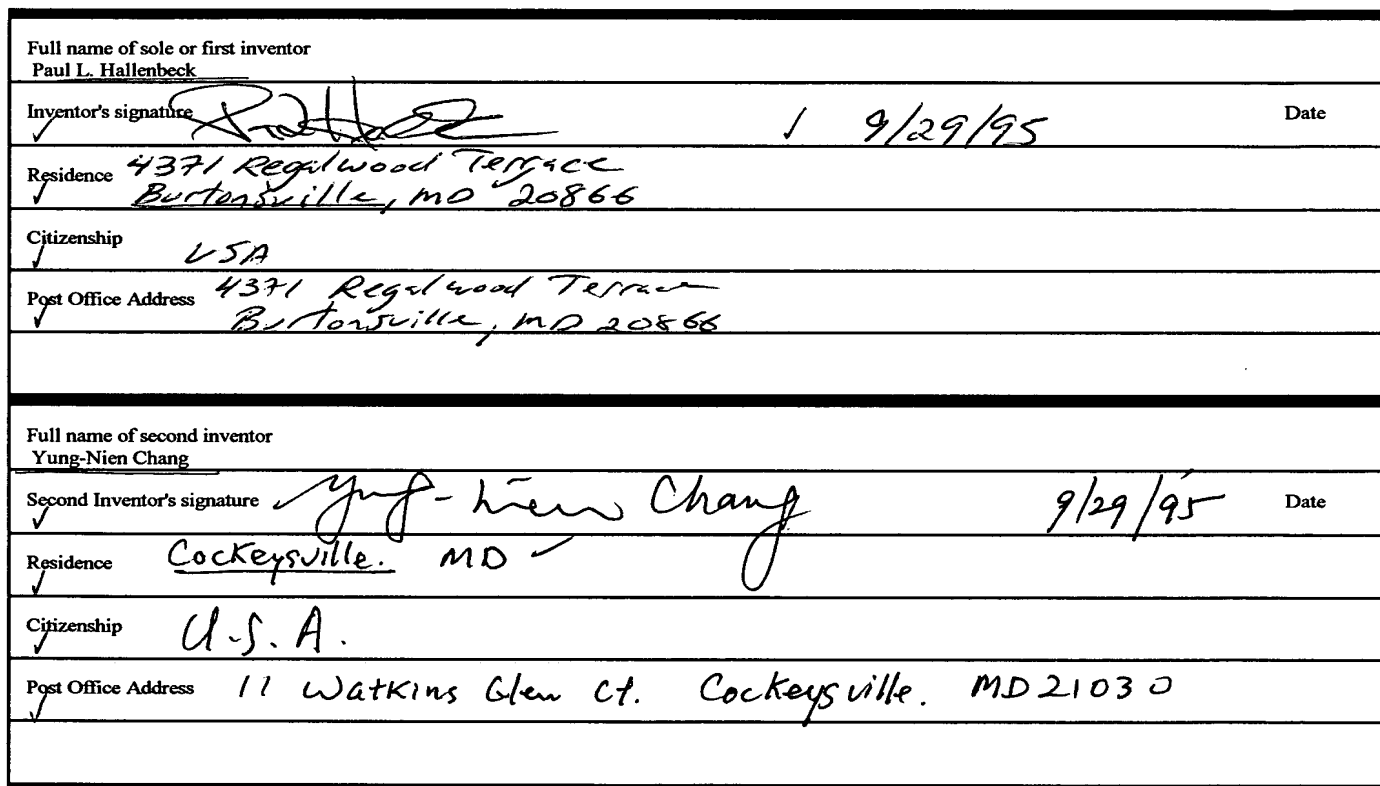 Full name of sole or first inventor
Paul L. Hallenbeck
Inventor's signature 9/29/95 Date
Residence 4371 Regalwood Terrace
Burtonsville, MD 20866
Citizenship USA
Post Office Address 4371 Regalwood Terrace
Burtonsville, MD 20866
Full name of second inventor
Yung-Nien Chang
Second Inventor's signature Yung-Nien Chang 9/29/95 Date
Residence Cockeysville. MD
Citizenship U.S.A.
Post Office Address 11 Watkins Glen Ct. Cockeysville. MD 21030